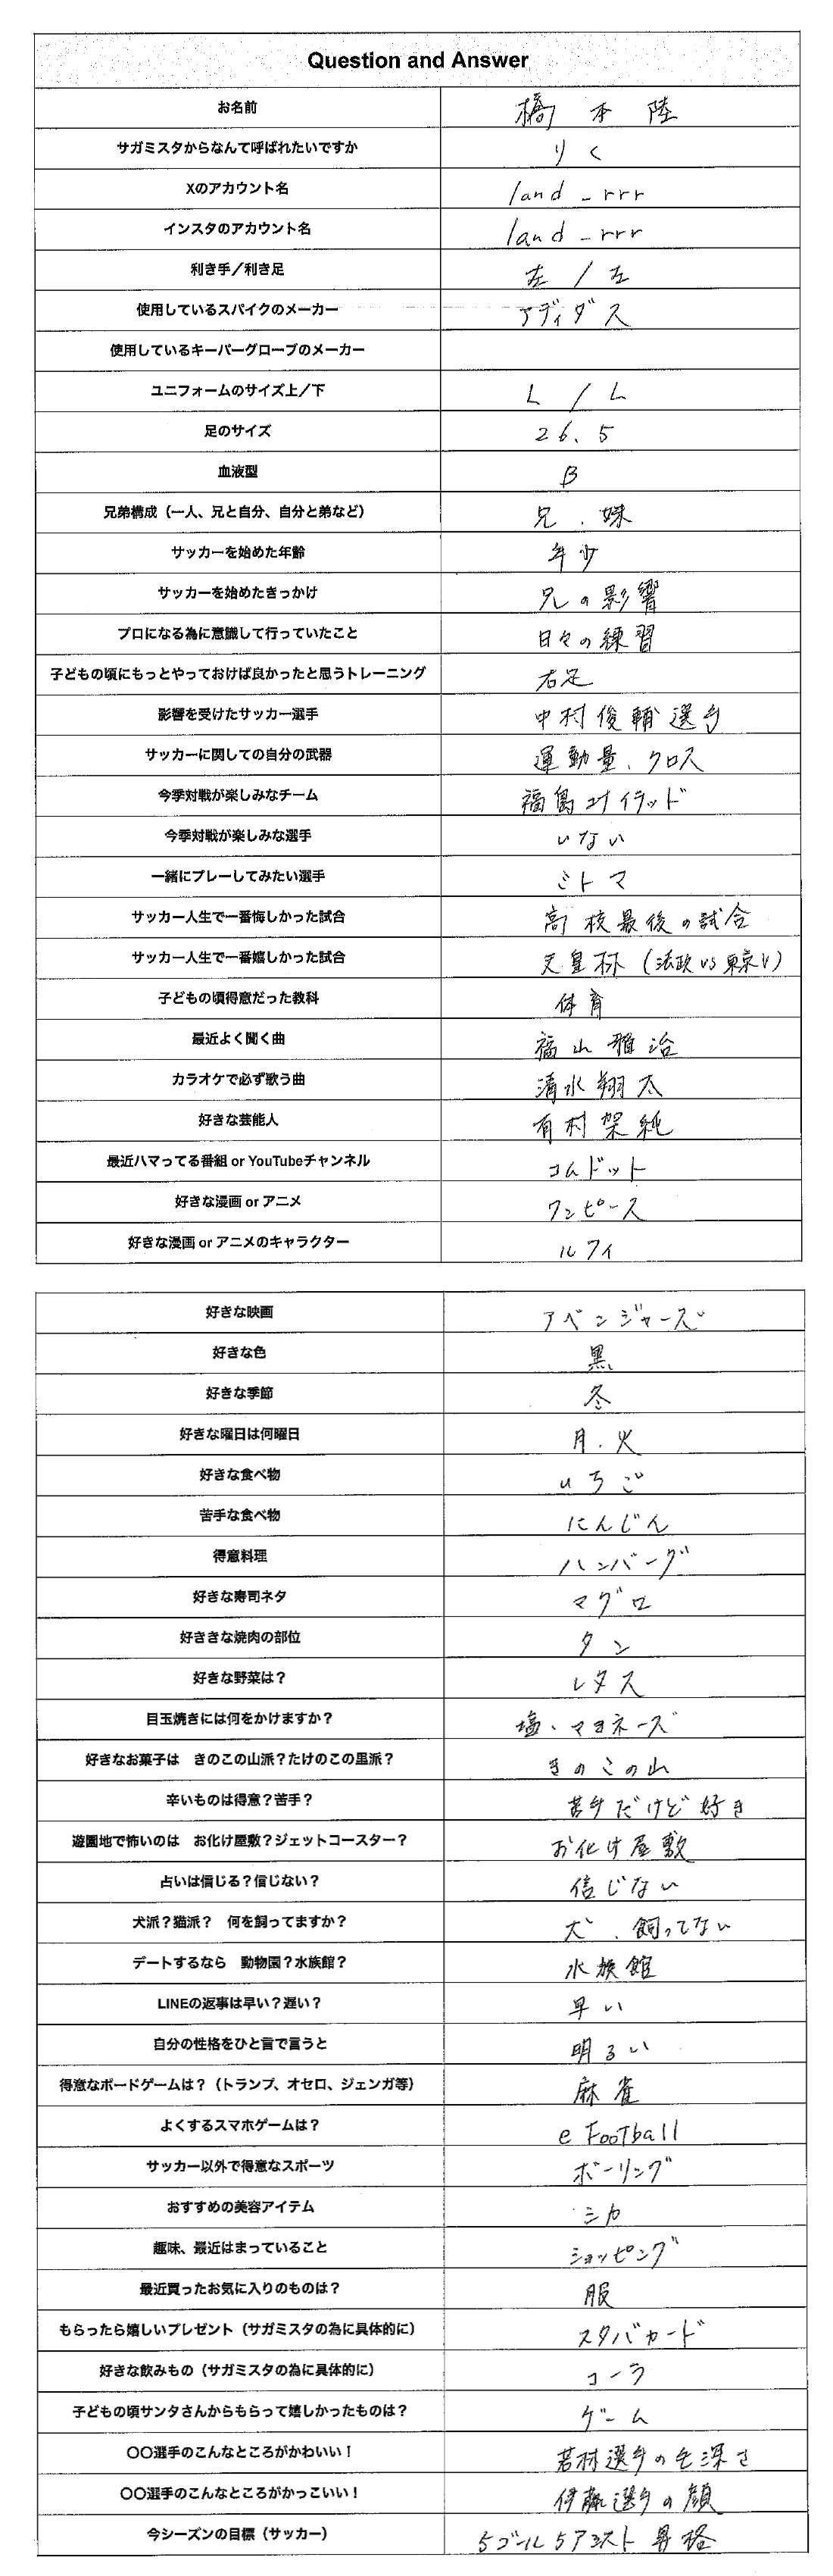 Question and Answer
お名前 橋本陸
サガミスタからなんて呼ばれたいですか りく
Xのアカウント名 land_rrr
インスタのアカウント名 land_rrr
利き手／利き足 左／左
使用しているスパイクのメーカー アディダス
使用しているキーパーグローブのメーカー
ユニフォームのサイズ上／下 L／L
足のサイズ 26.5
血液型 B
兄弟構成（一人、兄と自分、自分と弟など） 兄.妹
サッカーを始めた年齢 年少
サッカーを始めたきっかけ 兄の影響
プロになる為に意識して行っていたこと 日々の練習
子どもの頃にもっとやっておけば良かったと思うトレーニング 右足
影響を受けたサッカー選手 中村俊輔選手
サッカーに関しての自分の武器 運動量、クロス
今季対戦が楽しみなチーム 福島ユナイテッド
今季対戦が楽しみな選手 いない
一緒にプレーしてみたい選手 ミトマ
サッカー人生で一番悔しかった試合 高校最後の試合
サッカー人生で一番嬉しかった試合 天皇杯（法政vs東京V）
子どもの頃得意だった教科 体育
最近よく聞く曲 福山雅治
カラオケで必ず歌う曲 清水翔太
好きな芸能人 有村架純
最近ハマってる番組 or YouTubeチャンネル コムドット
好きな漫画 or アニメ ワンピース
好きな漫画 or アニメのキャラクター ルフィ
好きな映画 アベンジャーズ
好きな色 黒
好きな季節 冬
好きな曜日は何曜日 月.火
好きな食べ物 いちご
苦手な食べ物 にんじん
得意料理 ハンバーグ
好きな寿司ネタ マグロ
好ききな焼肉の部位 タン
好きな野菜は？ レタス
目玉焼きには何をかけますか？ 塩、マヨネーズ
好きなお菓子は　きのこの山派？たけのこの里派？ きのこの山
辛いものは得意？苦手？ 苦手だけど好き
遊園地で怖いのは　お化け屋敷？ジェットコースター？ お化け屋敷
占いは信じる？信じない？ 信じない
犬派？猫派？　何を飼ってますか？ 犬、飼ってない
デートするなら　動物園？水族館？ 水族館
LINEの返事は早い？遅い？ 早い
自分の性格をひと言で言うと 明るい
得意なボードゲームは？（トランプ、オセロ、ジェンガ等） 麻雀
よくするスマホゲームは？ e FooTball
サッカー以外で得意なスポーツ ボーリング
おすすめの美容アイテム シカ
趣味、最近はまっていること ショッピング
最近買ったお気に入りのものは？ 服
もらったら嬉しいプレゼント（サガミスタの為に具体的に） スタバカード
好きな飲みもの（サガミスタの為に具体的に） コーラ
子どもの頃サンタさんからもらって嬉しかったものは？ ゲーム
〇〇選手のこんなところがかわいい！ 若林選手の毛深さ
〇〇選手のこんなところがかっこいい！ 伊藤選手の顔
今シーズンの目標（サッカー） 5ゴール5アシスト昇格